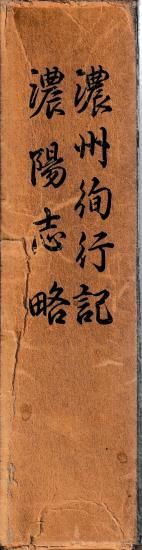 濃州徇行記
濃陽志略